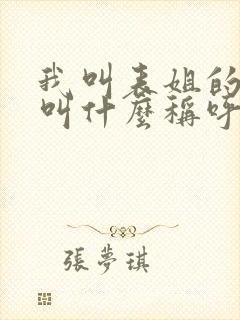 我叫表姐的
叫什麼稱呼
張夢琪